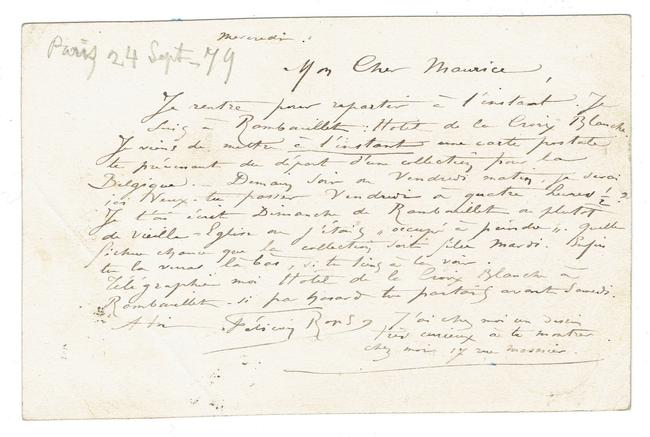 Mercredi.
Paris 24 Sept - 79
Mon Cher Maurice,
Je rentre pour repartir à l'instant. Je
suis à Rambouillet : Hotel de la Croix Blanche.
Je viens de mettre à l'instant une carte postale
te prévenant du départ d'un collectin pour la
Belgique. - Demain soir ou Vendredi matin, je serai
ici Veux-tu passer Vendredi à quatre heures ! ?
Je t'ai écrit Dimanche de Rambouillet ou plutot
de Vieille-Eglise où j'étais „ occupé à peindre „. Quelle
fichue chance que la collection soit filée mardi. Enfin
tu la verras là bas, si tu tiens à la voir.
Télégraphie moi Hotel de la Croix Blanche à
Rambouillet - si par hasard tu partais avant Samedi.
A toi Félicien Rops
J'ai chez moi un dessin
très curieux à te montrer
chez moi 17 rue mosnier.